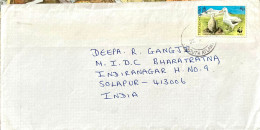 DEEPA. R. GANGJI
M. I. D. C BHARATRATNA
INJIRANAGAR H. NO. 9
SOLAPUR - 413006
INDIA